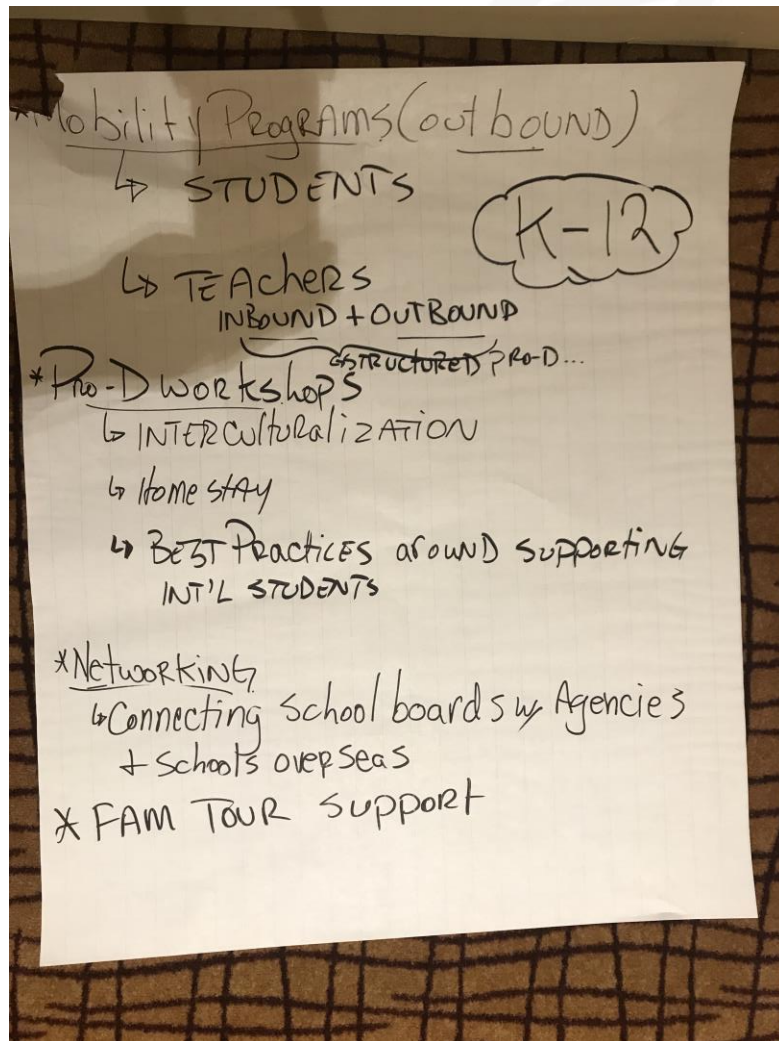 *Mobility Programs (outbound)
↳ STUDENTS
K-12
↳ TEAchers
INBOUND + OUTBOUND
↳ STRUCTURED PRO-D...
*Pro-D workshops
↳ INTERCulturalizATION
↳ Homestay
↳ BEST Practices around supporting
INT'L STUDENTS
*Networking
↳ Connecting School boards w/ Agencies
+ Schools overseas
* FAM TOUR Support